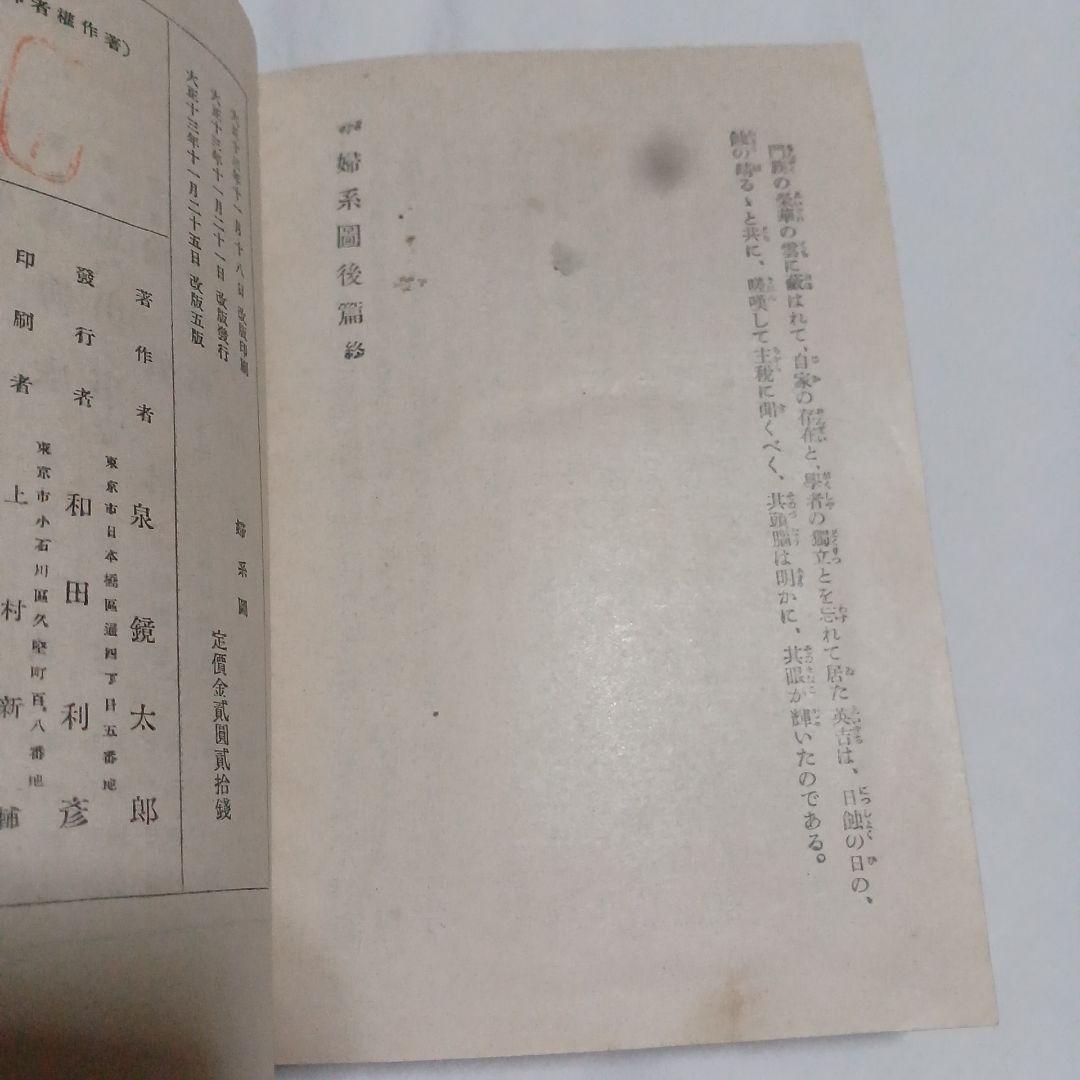 門閥の榮華の雲に蔽はれて、自家の存在と、學者の獨立とを忘れて居た英吉は、日蝕の日の、
蝕の晴るゝと共に、嗟嘆して主税に聞くべく、其頭腦は明かに、其眼が輝いたのである。
婦系圖後篇 終
婦系圖
定價金貳圓貳拾錢
大正十三年十一月十八日 改版印刷
大正十三年十一月二十一日 改版發行
大正十三年十一月二十五日 改版五版
著作者
泉鏡太郎
東京市日本橋區通四丁目五番地
發行者
和田利彦
東京市小石川區久堅町百八番地
印刷者
上村新輔
者權作著)